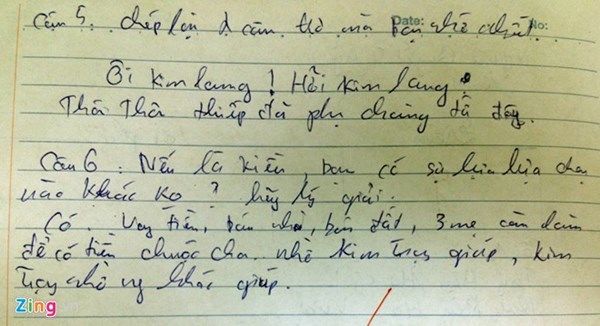 Câu 5. chép lại 2 câu thơ mà bạn nhớ nhất.
Date:
No:
Ôi kim lang! Hỡi kim lang!
Thôi Thôi thiếp đã phụ chàng từ đây.
Câu 6: Nếu là kiều, bạn có sự lựa lựa chọn
nào khác ko? hãy lý giải.
Có. Vay tiền, bán nhà, bán đất, 3 mẹ con làm
để có tiền chuộc cha. nhờ kim trọng giúp, kim
trọng nhờ ng khác giúp.
Zing